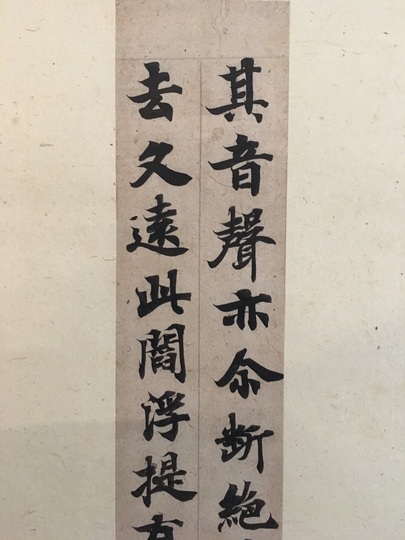 其音聲亦尒断絶
去久遠此閻浮提